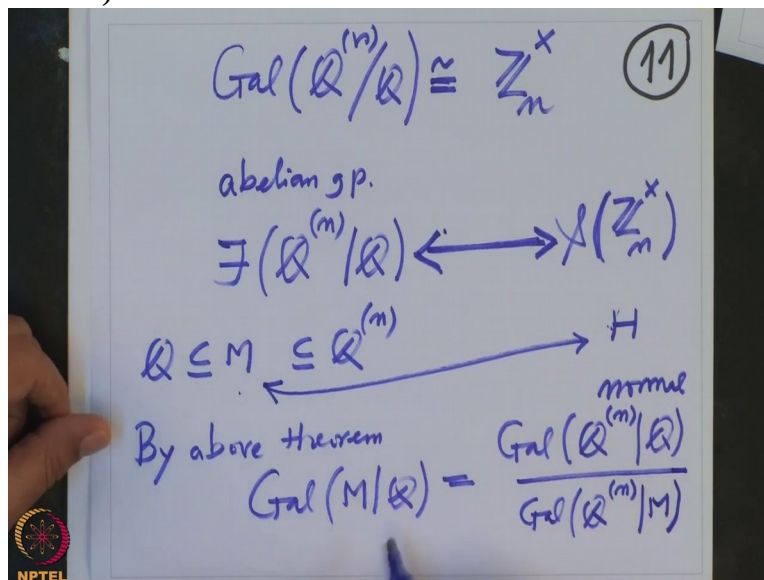 Gal(ℚ⁽ⁿ⁾/ℚ) ≅ ℤₙˣ
11
abelian gp.
∃(ℚ⁽ⁿ⁾|ℚ) ⟷ 𝒮(ℤₙˣ)
ℚ ⊆ M ⊆ ℚ⁽ⁿ⁾ ⟷ H
normal
By above theorem
Gal(M|ℚ) = Gal(ℚ⁽ⁿ⁾|ℚ) / Gal(ℚ⁽ⁿ⁾|M)
NPTEL